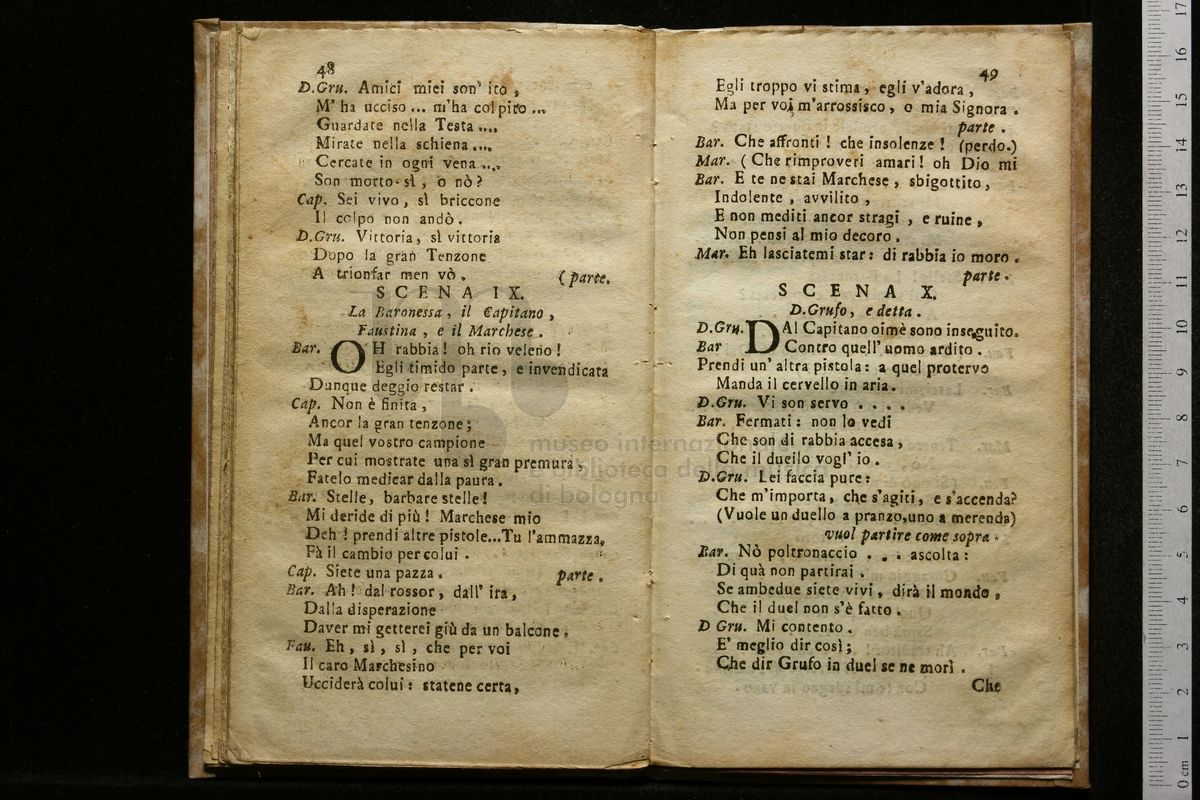 48
D.Gru. Amici miei son' ito,
M' ha ucciso ... m'ha colpito ...
Guardate nella Testa ....
Mirate nella schiena ....
Cercate in ogni vena ....
Son morto sì, o nò?
Cap. Sei vivo, sì briccone
Il colpo non andò.
D.Gru. Vittoria, sì vittoria
Dopo la gran Tenzone
A trionfar men vò. (parte.
SCENA IX.
La Baronessa, il Capitano,
Faustina, e il Marchese.
Bar. OH rabbia! oh rio veleno!
Egli timido parte, e invendicata
Dunque deggio restar.
Cap. Non è finita,
Ancor la gran tenzone;
Ma quel vostro campione
Per cui mostrate una sì gran premura,
Fatelo medicar dalla paura.
Bar. Stelle, barbare stelle!
Mi deride di più! Marchese mio
Deh! prendi altre pistole...Tu l'ammazza,
Fà il cambio per colui.
Cap. Siete una pazza. parte.
Bar. Ah! dal rossor, dall' ira,
Dalla disperazione
Daver mi getterei giù da un balcone.
Fau. Eh, sì, sì, che per voi
Il caro Marchesino
Ucciderà colui: statene certa,
49
Egli troppo vi stima, egli v'adora,
Ma per voi m'arrossisco, o mia Signora.
parte.
Bar. Che affronti! che insolenze! (perdo.)
Mar. (Che rimproveri amari! oh Dio mi
Bar. E te ne stai Marchese, sbigottito,
Indolente, avvilito,
E non mediti ancor stragi, e ruine,
Non pensi al mio decoro.
Mar. Eh lasciatemi star: di rabbia io moro.
parte.
SCENA X.
D.Grufo, e detta.
D.Gru. DAl Capitano oimè sono inseguito.
Bar Contro quell' uomo ardito.
Prendi un' altra pistola: a quel protervo
Manda il cervello in aria.
D.Gru. Vi son servo . . . .
Bar. Fermati: non lo vedi
Che son di rabbia accesa,
Che il duello vogl' io.
D.Gru. Lei faccia pure:
Che m'importa, che s'agiti, e s'accenda?
(Vuole un duello a pranzo,uno a merenda)
vuol partire come sopra.
Bar. Nò poltronaccio . . . ascolta:
Di quà non partirai.
Se ambedue siete vivi, dirà il mondo,
Che il duel non s'è fatto.
D Gru. Mi contento.
E' meglio dir così;
Che dir Grufo in duel se ne morì.
Che
museo internaz
e biblioteca della musica
di bologna
0 cm 1 2 3 4 5 6 7 8 9 10 11 12 13 14 15 16 17